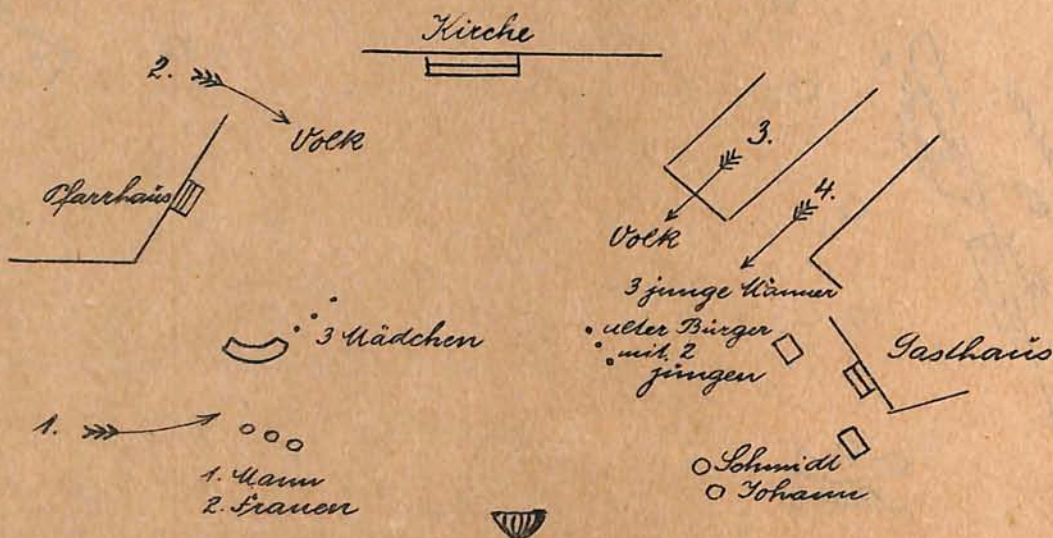 Kirche
2.
Volk
Pfarrhaus
3.
4.
Volk
3 junge Männer
alter Bürger
mit 2
jungen
3 Mädchen
Gasthaus
1.
1. Mann
2. Frauen
Schmidt
Johann